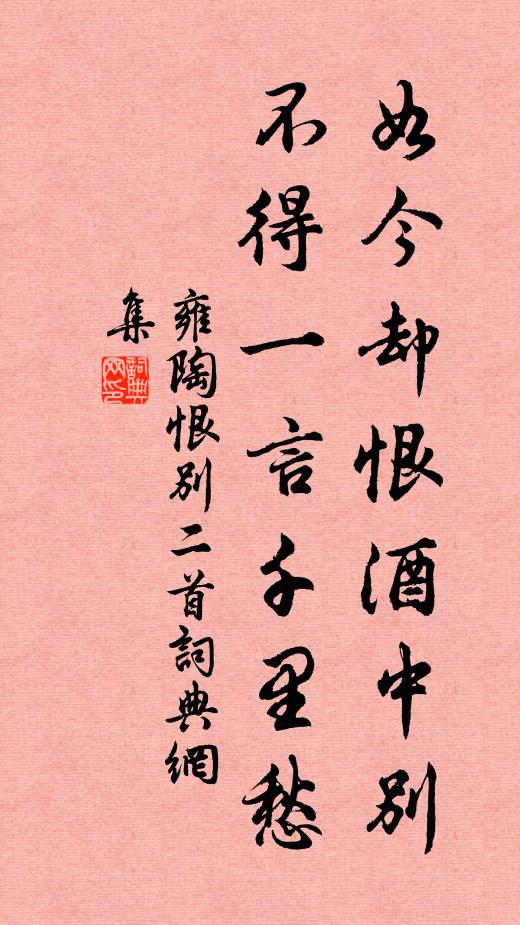 如今却恨酒中別
不得一言千里愁
雍陶恨別二首詞典網
集
詞典
网印